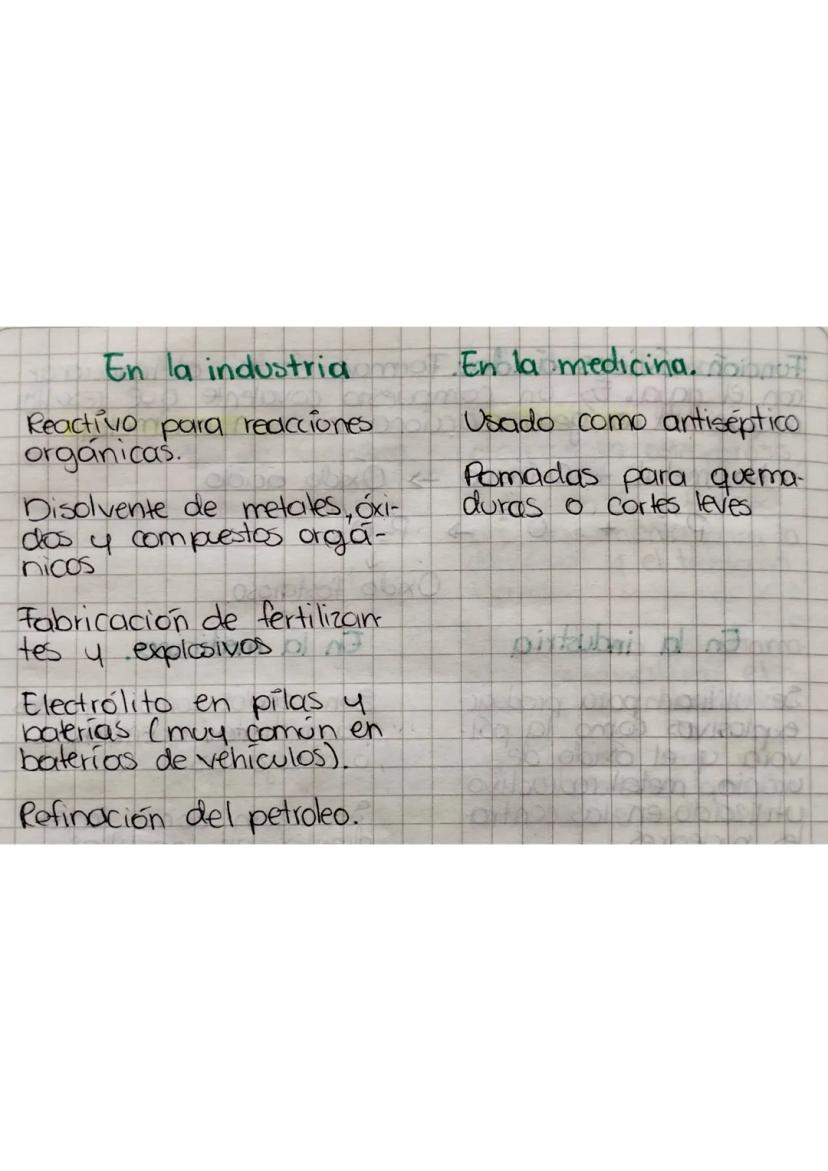 En la industria
Reactivo para reacciones
orgánicas.
Disolvente de metales, óxi-
dos y compuestos orgá-
nicos
Fabricación de fertilizan
tes y explosivos
Electrólito en pilas y
baterías (muy común en
baterías de vehículos).
Refinación del petroleo.
En la medicina.
Usado como antiséptico
Pomadas para quema-
duras o cortes leves